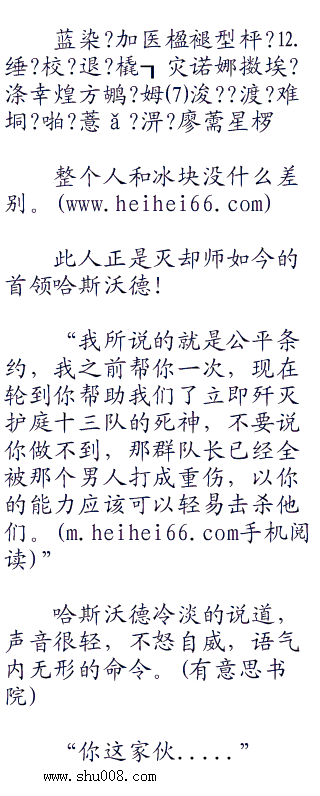 蓝染?加医楹褪型枰?12.
缍?校?退?橇┓灾诺娜撽埃?
涤幸煌方鹕?姆(7)浚??渡?难
垌?啪?薏ǎ?淠?廖蕮星椤
整个人和冰块没什么差
别。(www.heihei66.com)
此人正是灭却师如今的
首领哈斯沃德!
“我所说的就是公平条
约，我之前帮你一次，现在
轮到你帮助我们了立即歼灭
护庭十三队的死神，不要说
你做不到，那群队长已经全
被那个男人打成重伤，以你
的能力应该可以轻易击杀他
们。(m.heihei66.com手机阅
读)”
哈斯沃德冷淡的说道，
声音很轻，不怒自威，语气
内无形的命令。(有意思书
院)
“你这家伙.....”
www.shu008.com